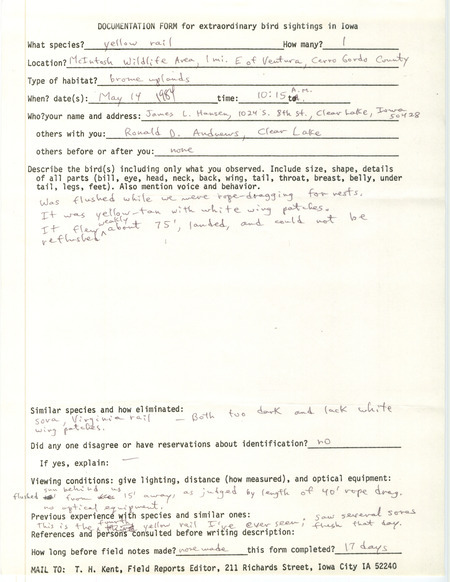 DOCUMENTATION FORM for extraordinary bird sightings in Iowa
What species? yellow rail How many? 1
Location? McIntosh Wildlife Area, 1 mi. E of Ventura, Cerro Gordo County
Type of habitat? brome uplands
When? date(s): May 14 1984 time: 10:15 A.M. to
Who? your name and address: James L. Hansen, 1024 S. 8th St., Clear Lake, Iowa 50428
others with you: Ronald D. Andrews, Clear Lake
others before or after you: none
Describe the bird(s) including only what you observed. Include size, shape, details
of all parts (bill, eye, head, neck, back, wing, tail, throat, breast, belly, under
tail, legs, feet). Also mention voice and behavior.
Was flushed while we were rope-dragging for nests.
It was yellow-tan with white wing patches.
It flew weakly about 75', landed, and could not be
reflushed
Similar species and how eliminated:
sora, Virginia rail — Both two dark and lack white
wing patches.
Did any one disagree or have reservations about identification? no
If yes, explain: —
Viewing conditions: give lighting, distance (how measured), and optical equipment:
sun behind us
flushed from 15' away, as judged by length of 40' rope drag.
no optical equipment.
Previous experience with species and similar ones: saw several soras
This is the fourth yellow rail I've ever seen; flush that day.
References and persons consulted before writing description:
How long before field notes made? none made this form completed? 17 days
MAIL TO: T. H. Kent, Field Reports Editor, 211 Richards Street, Iowa City IA 52240